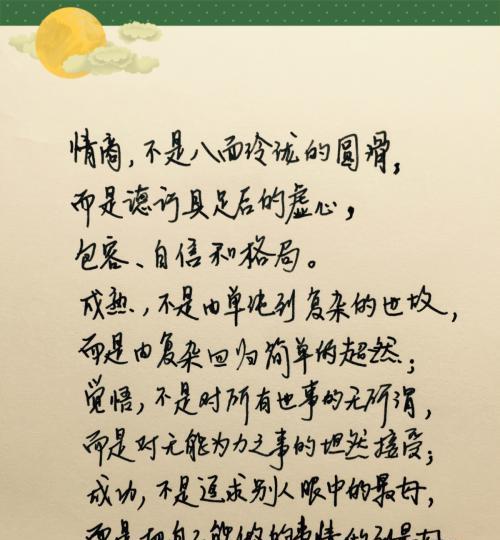 情商，不是八面玲珑的圆滑，
而是德行具足后的虚心，
包容、自信和格局。
成熟，不是由单纯到复杂的世故，
而是由复杂回归简单的超然；
觉悟，不是对所有世事的无所谓，
而是对无能为力之事的坦然接受；
成功，不是追求别人眼中的最好，
而是把自己能做的事情做到最好